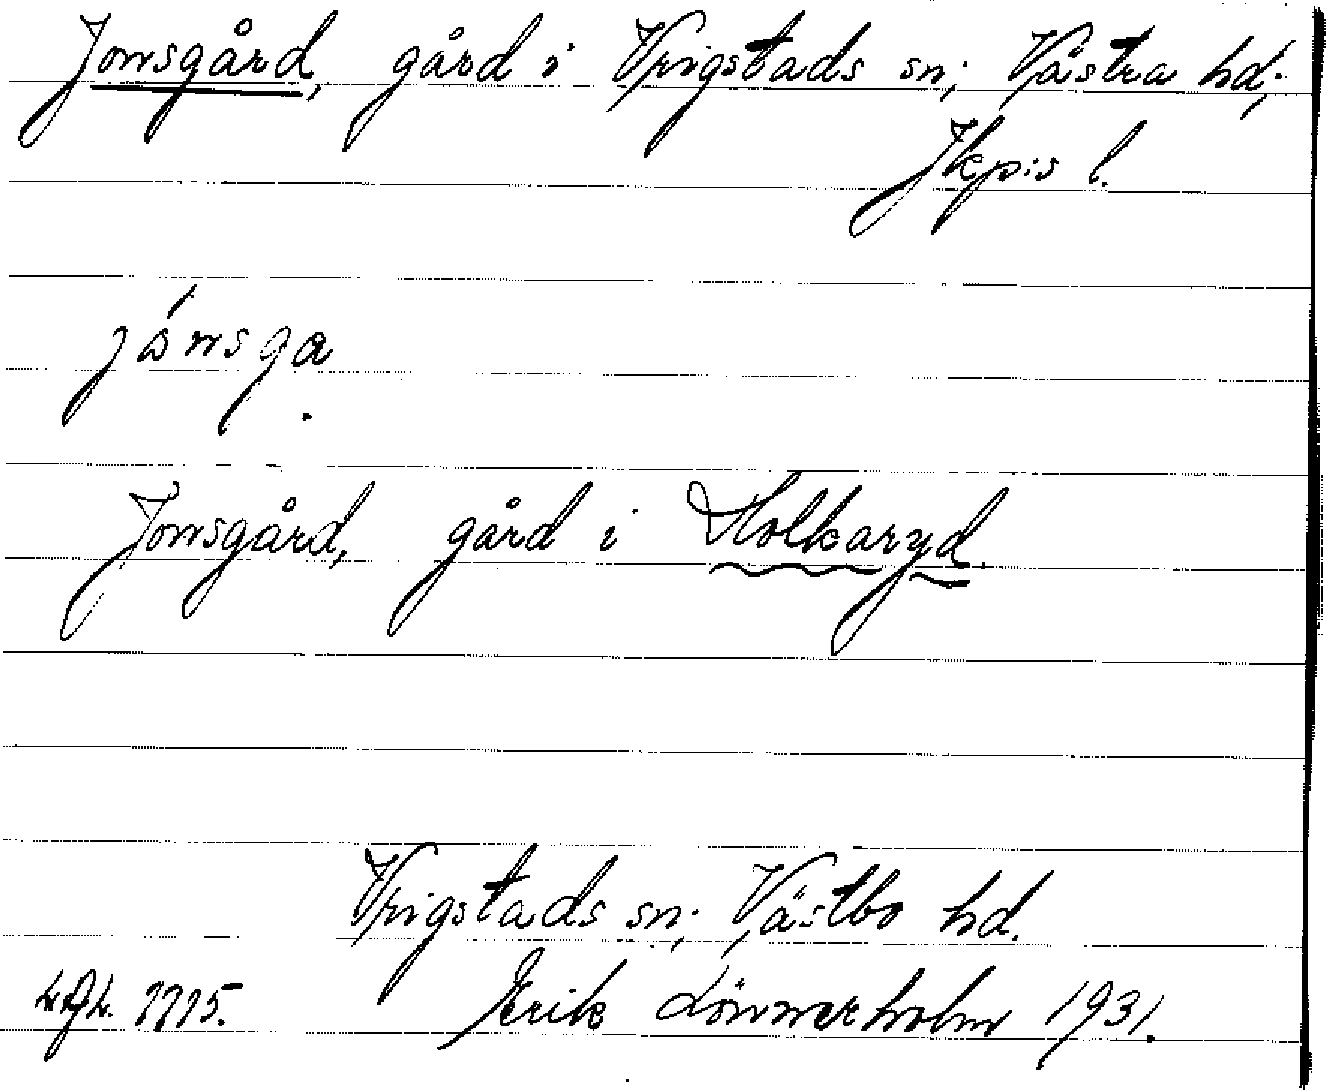 Jonsgård, gård i Vrigstads sn; Västra hd;
Jkpis l.
jónsga
Jonsgård, gård i Holkaryd.
Vrigstads sn; Västbo hd.
1715. Erik Lönnerholm 1931.